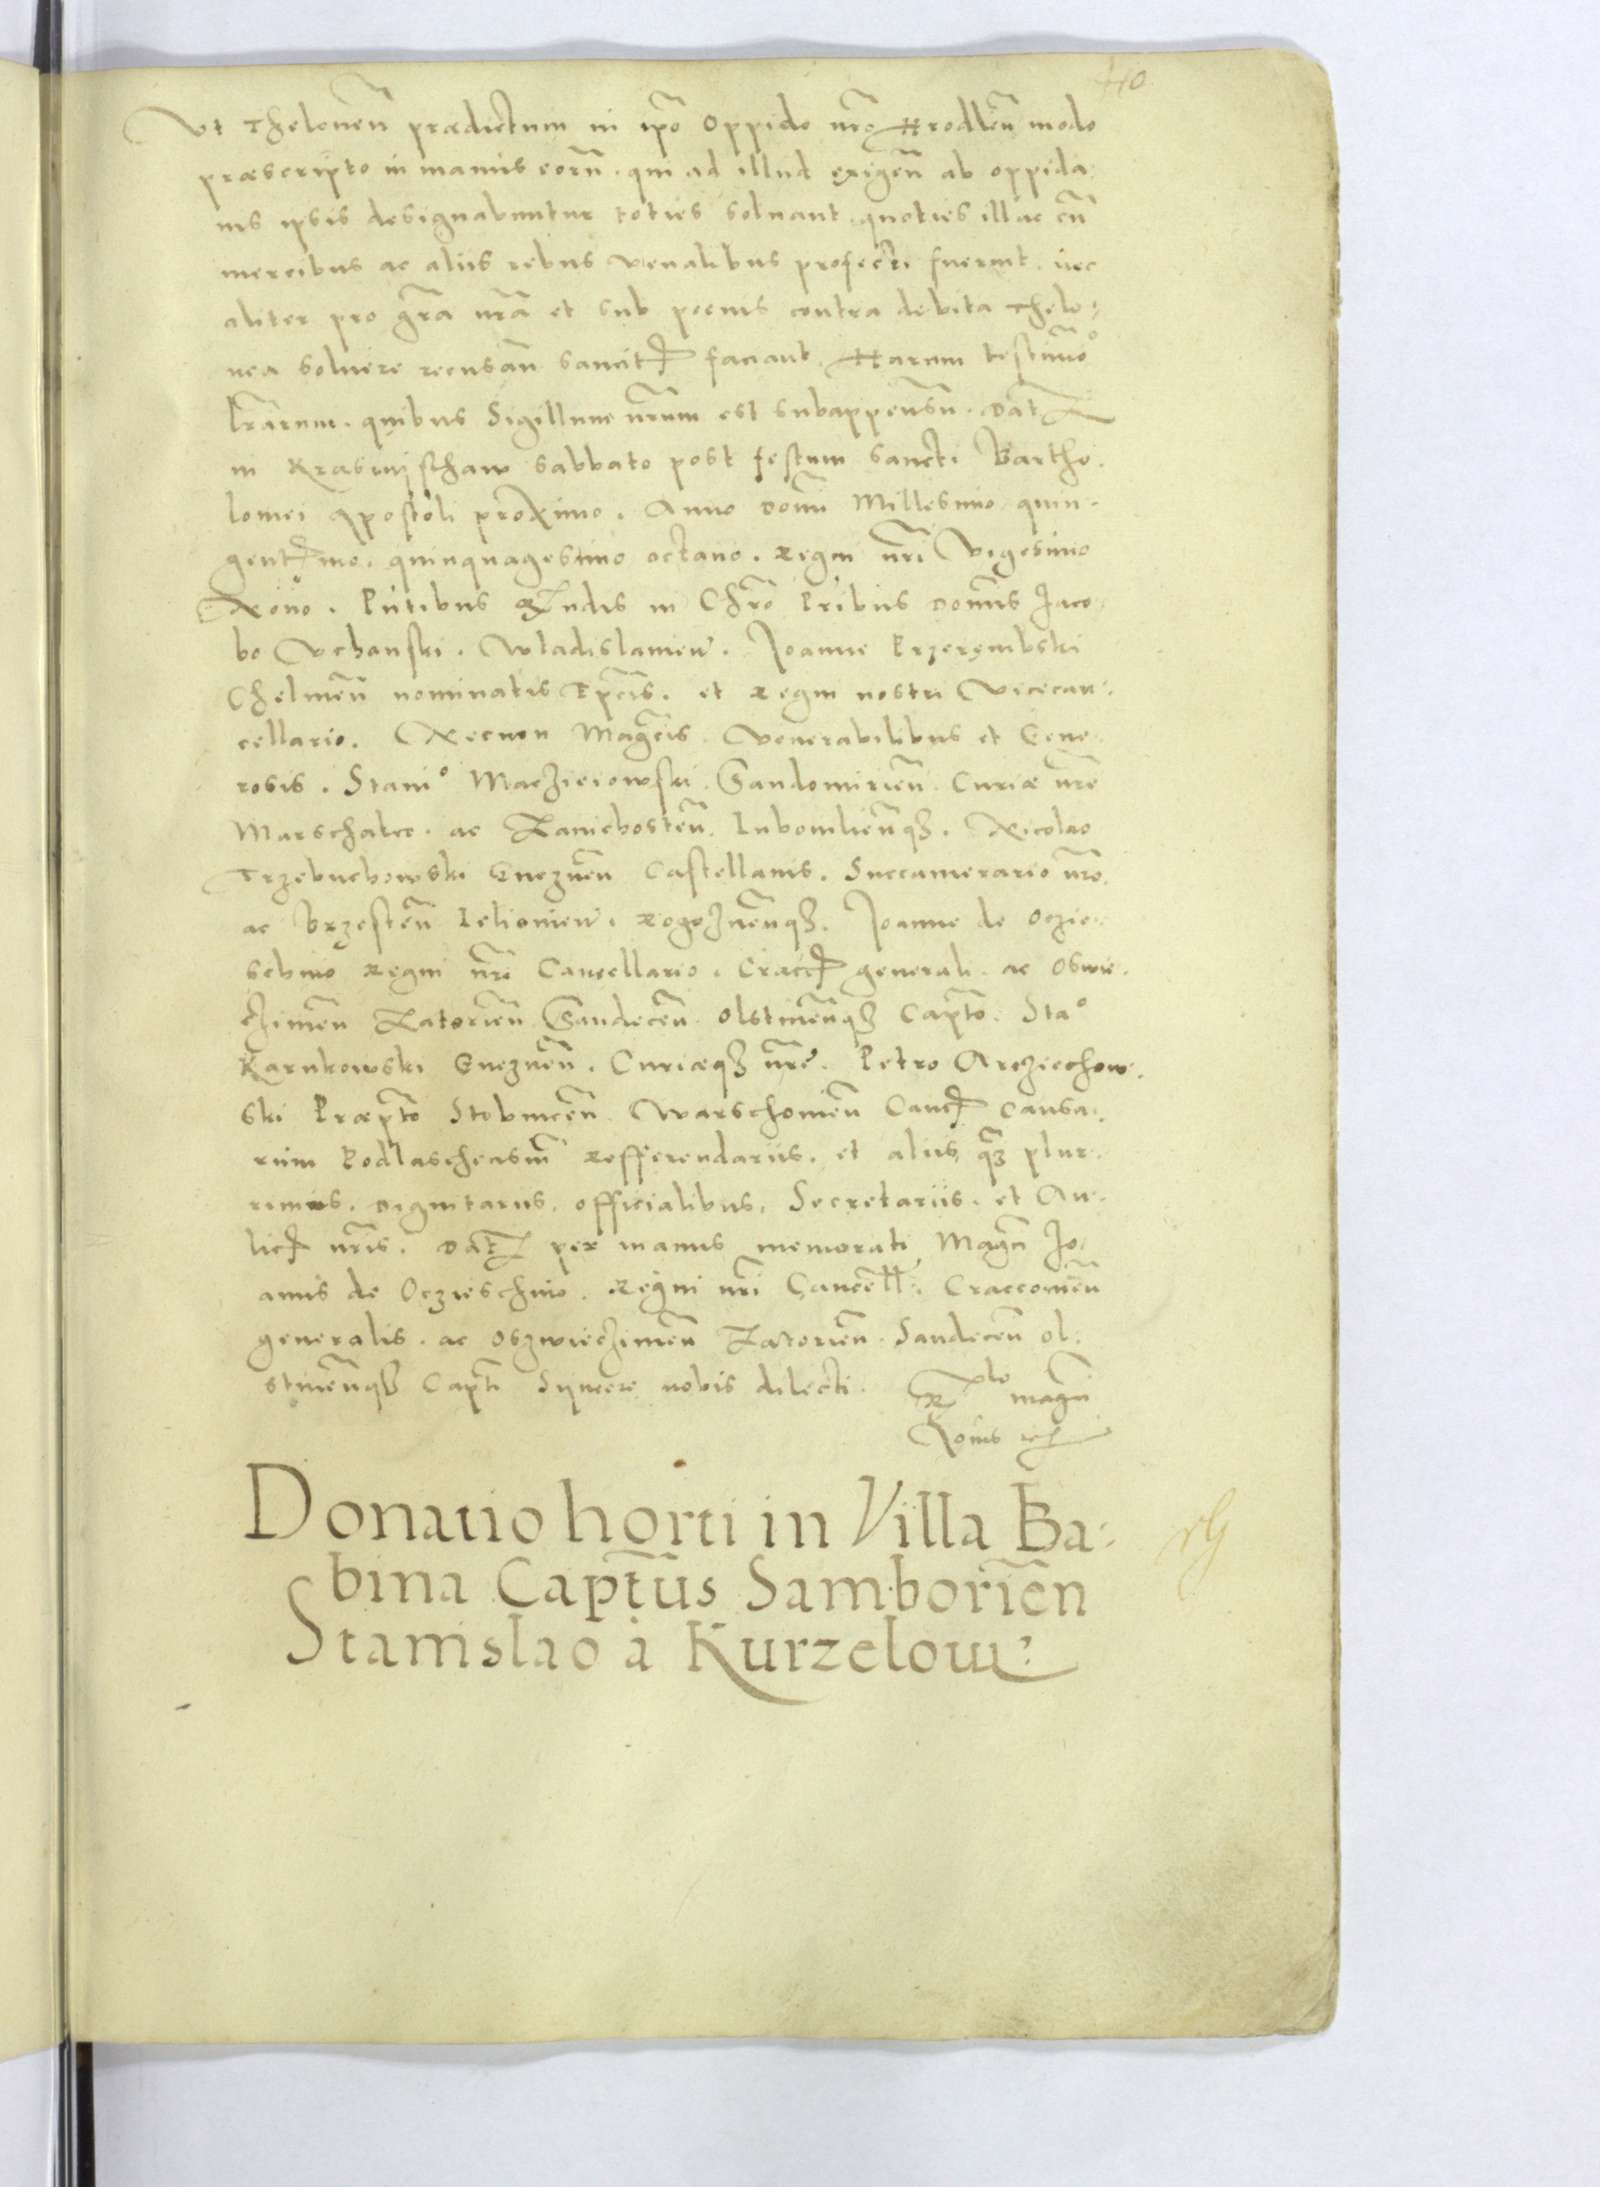 40
Vt Theloneũ prædictum in ip̃o Oppido nr̃o Hrodleñ modo
præscripto in manus eorũ. qui ad illud exigeñ ab oppida-
nis ipsis designabuntur toties soluant. quoties illac cũ
mercibus ac aliis rebus venalibus profecti fuerint. nec
aliter pro gr̃a nr̃a et sub poenis contra debita Thelo-
nea soluere recusañ sancitꝭ faciant. Harum testimõ
lr̃arum. quibus Sigillum nr̃um est subappensũ. Dat̃
in Krasnijschaw sabbato post festum sancti Bartho-
lomei Apostoli proximo. Anno Domĩ Millesimo quin-
gentꝭmo. quinquagesimo octauo. Regni nr̃i Vigesimo
Nono. Pñtibus Rñdis in Chr̃o Pribus Domĩs Jaco-
bo Vchanski. Wladislauieñ. Joanne Przerembski
Chelmeñ nominatis Ep̃cis. et Regni nostri Vicecan-
cellario. Necnon Magc̃is. Venerabilibus et Gene-
rosis. Stanᵒ Maczieiowski. Sandomirieñ. Curiæ nr̃e
Marschalco. ac Zauichosteñ. Lubomlieñqꝫ. Nicolao
Trzebuchowski Gnezneñ Castellanis. Succamerario nr̃o.
ac Brzesteñ Lelionieñ. Rogozneñqꝫ. Joanne de Oczie-
schino Regni nr̃i Cancellario. Craccꝭ generali. ac Oswie-
czimeñ Zatorieñ Sandeceñ Olstineñqꝫ Capt̃o. Staᵒ
Karnkowski Gnezneñ. Curiæqꝫ nr̃e. Petro Arcziechow-
ski Præpt̃o Stobniceñ. Warschouieñ Cancꝭ Causa-
rum Podlascheasm̃ Refferendariis. et aliis qꝫ plur-
rimis. Dignitariis. officialibus. Secretariis. et Au-
licꝭ nr̃is. Dat̃ per manus memorati Magcĩ Jo-
annis de Oczieschino. Regni nr̃i Cancell̃. Craccouieñ
generalis. ac Oszwieczimeñ Zatorieñ. Sandeceñ Ol-
stineñqꝫ Capt̃i Syncere nobis dilecti. Rlo magcĩ
Donatio horti in Villa Ba-
bina Capt̃us Samborieñ
Stanislao à Kurzelow